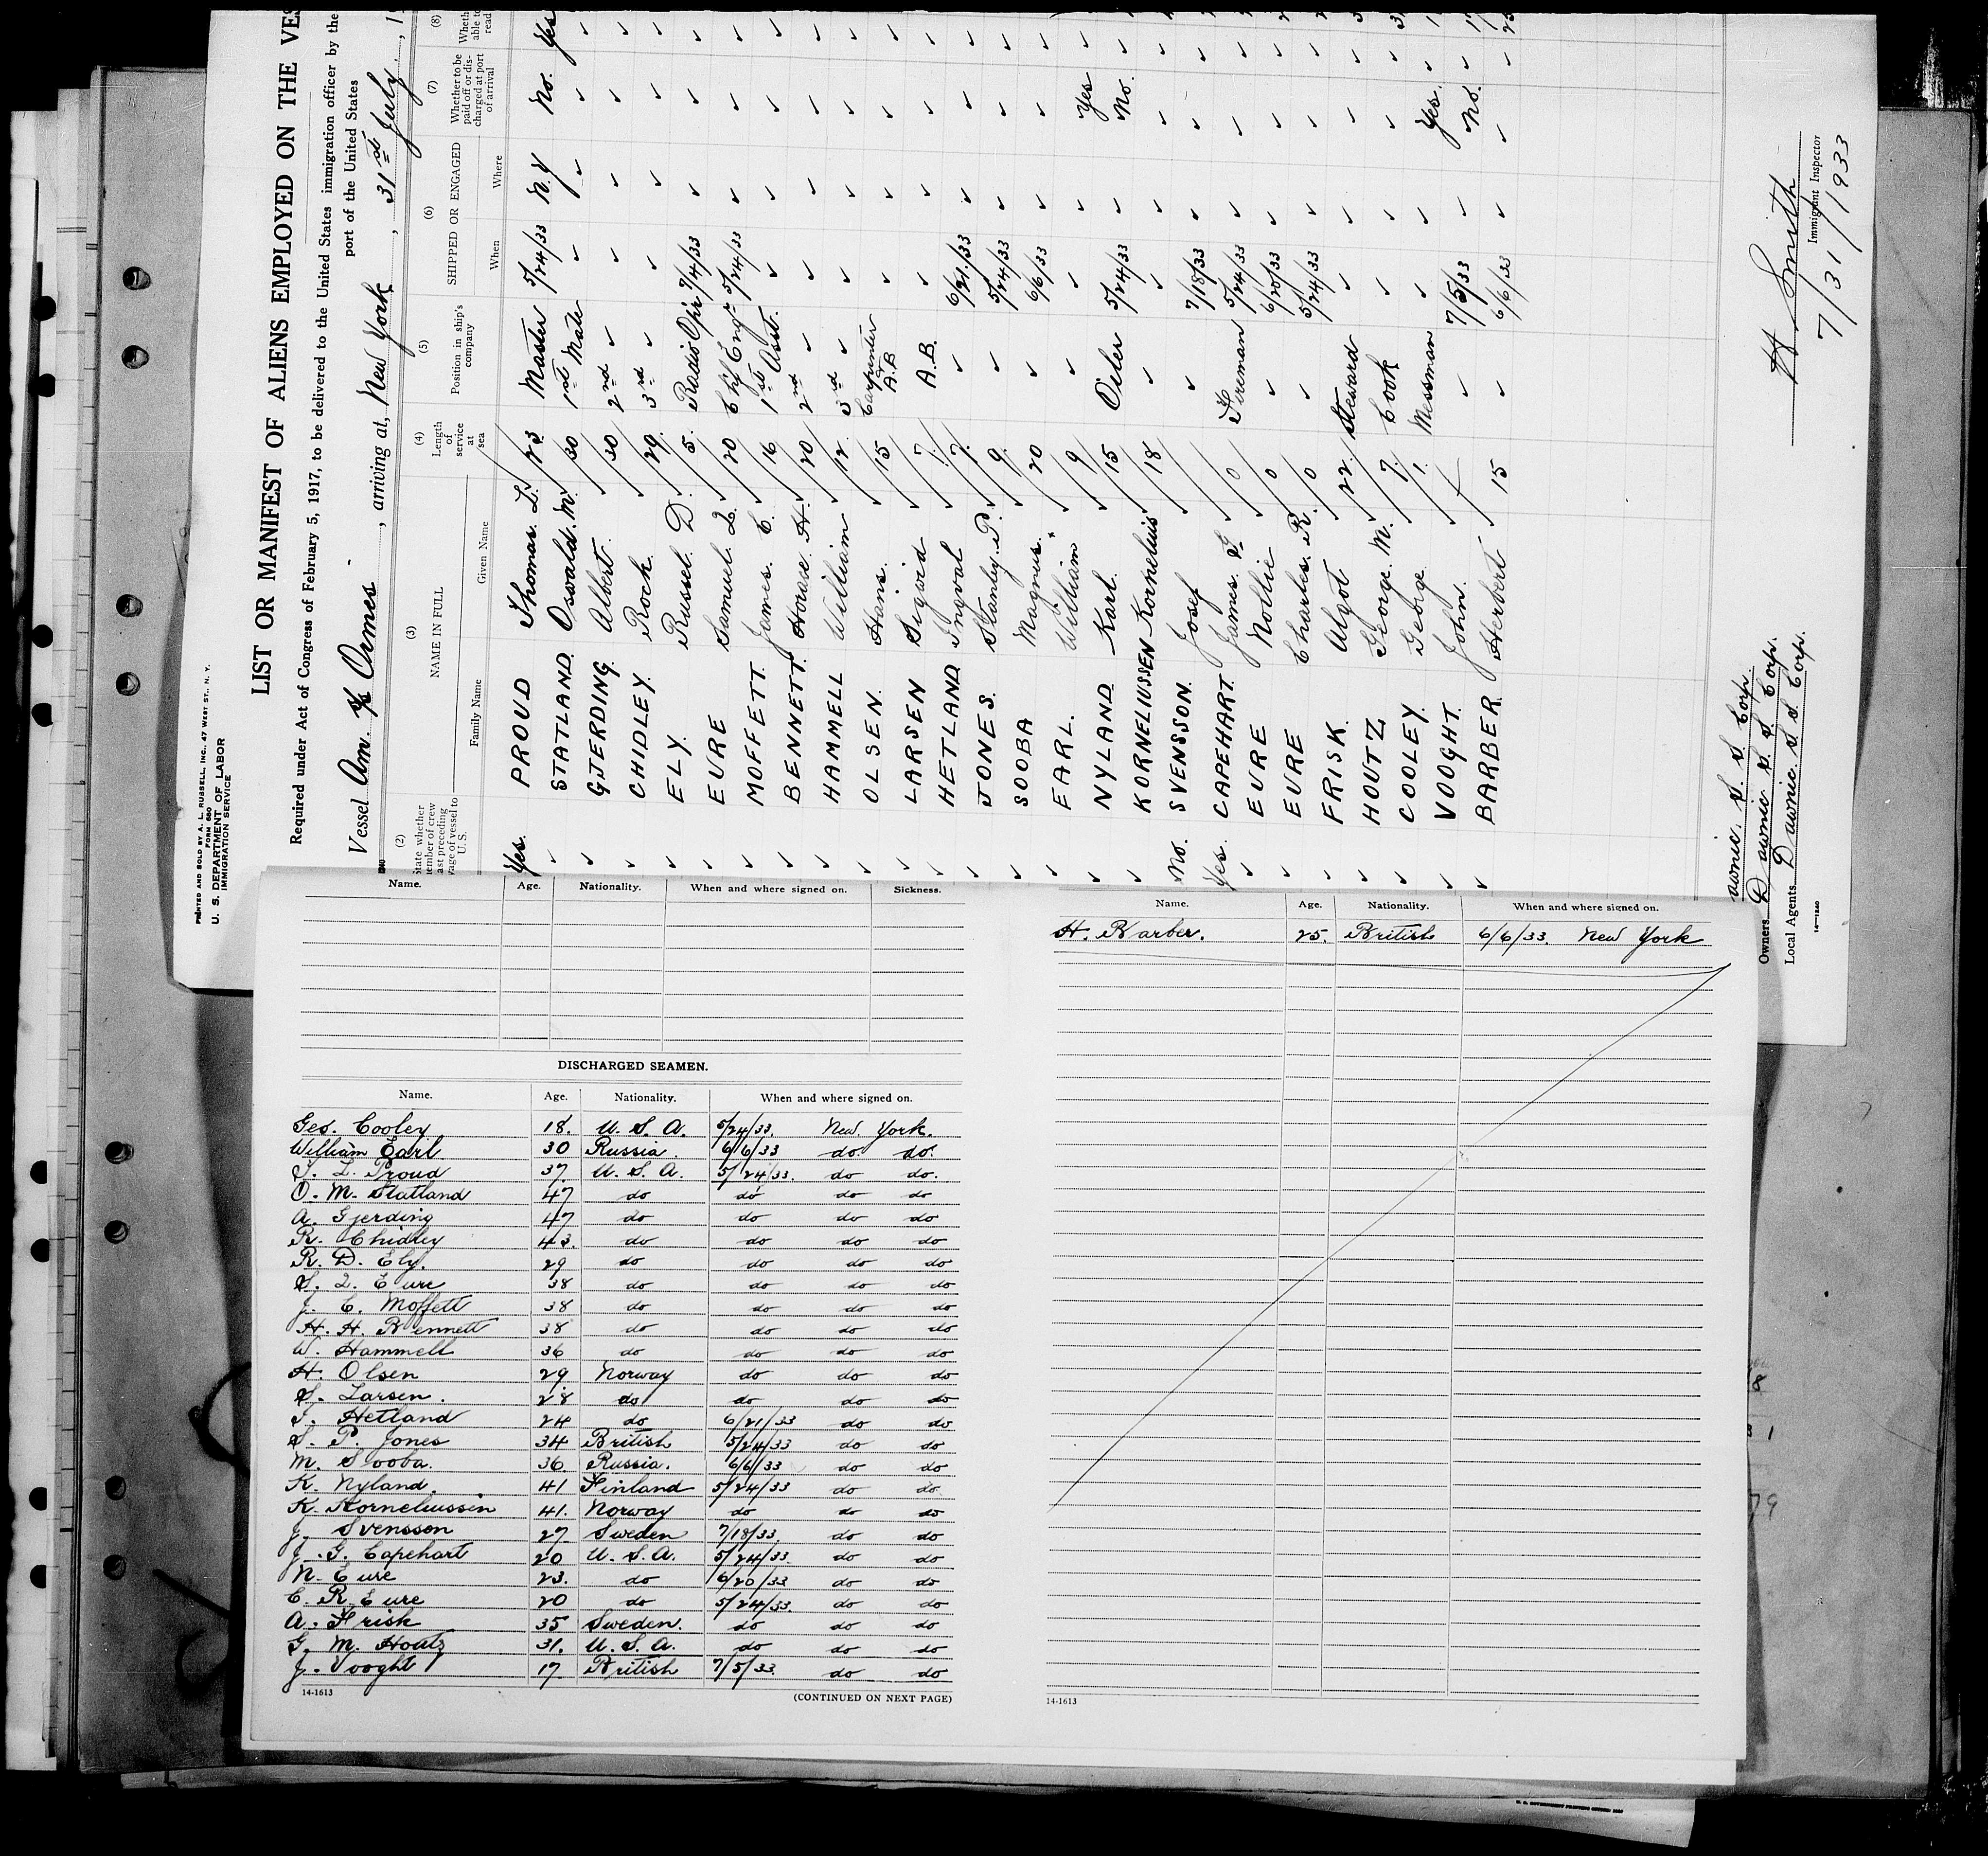 PRINTED AND SOLD BY A. L. RUSSELL, INC., 47 WEST ST., N. Y.
FORM 680
U. S. DEPARTMENT OF LABOR
IMMIGRATION SERVICE
LIST OR MANIFEST OF ALIENS EMPLOYED ON THE VES
Required under Act of Congress of February 5, 1917, to be delivered to the United States immigration officer by the
port of the United States
Vessel Am. , arriving at, New York, 31st July, 19
(2) (3) (4) (5) (6) (7) (8)
NAME IN FULL Length of service at sea Position in ship's company SHIPPED OR ENGAGED Whether to be paid off or discharged at port of arrival
Family Name Given Name When Where
Yes. PROUD Thomas. L. 23 Master 5/24/33 N.Y No. Yes
✓ STATLAND. Oswald. M. 30 1st Mate ✓ ✓ ✓ ✓
✓ GJERDING. Albert. 30 2nd ✓ ✓ ✓ ✓ ✓
✓ CHIDLEY. Rock 29. 3rd ✓ ✓ ✓ ✓ ✓
✓ ELY. Russel. D. 5. Radio Opr 7/4/33 ✓ ✓ ✓
✓ EURE Samuel. L. 20 Chf Engr 5/24/33 ✓ ✓ ✓
✓ MOFFETT. James. C. 16 1st Asst. ✓ ✓ ✓ ✓
✓ BENNETT. Horace. H. 20 2nd ✓ ✓ ✓ ✓ ✓
✓ HAMMELL William 12 3rd ✓ ✓ ✓ ✓ ✓
✓ OLSEN. Hans. 15 Carpenter A.B ✓ ✓ ✓ ✓
✓ LARSEN Sigwid 7. A.B. ✓ ✓ ✓ ✓
✓ HETLAND Ingval 7. ✓ 6/21/33 ✓ ✓ ✓
✓ JONES. Stanley. P. 9. ✓ 5/24/33 ✓ ✓ ✓
✓ SOOBA Magnus. 20 ✓ 6/6/33 ✓ ✓ ✓
✓ EARL. William 9 ✓ ✓ ✓ Yes ✓
✓ NYLAND Karl. 15 Oiler 5/24/33 ✓ No. ✓
✓ KORNELIUSSEN Kornelius 18 ✓ ✓ ✓ ✓ ✓
No. SVENSSON. Josef ✓ 7/18/33 ✓ ✓ ✓
Yes. CAPEHART. James. G. 0 Fireman 5/24/33 ✓ ✓ ✓
✓ EURE Nollie 0 ✓ 6/20/33 ✓ ✓ ✓
✓ EURE Charles. R. 0 ✓ 5/24/33 ✓ ✓ ✓
✓ FRISK. Algot 22. Steward ✓ ✓ ✓ ✓
✓ HOUTZ George. M. 7. Cook ✓ ✓ ✓ ✓
✓ COOLEY. George 1. Messman ✓ ✓ Yes. ✓
✓ VOOGHT. John. ✓ 7/5/33 ✓ No. ✓
✓ BARBER. Herbert 15 ✓ 6/6/33 ✓ ✓ ✓
S. S. Corp.
Owners S. S. Corp.
Local Agents S. S. Corp.
Smith
Immigrant Inspector
7/31/1933
Name. Age. Nationality. When and where signed on. Sickness.
DISCHARGED SEAMEN.
Name. Age. Nationality. When and where signed on.
Geo. Cooley 18. U. S. A. 5/24/33. New York.
William Earl 30 Russia. 6/6/33 do. do.
T. L. Proud 37. U. S. A. 5/24/33. do do.
O. M. Statland 47 do do do do
A. Gjerding 47 do do do do
R. Chidley 43. do do do do
R. D. Ely. 29 do do do do
S. L. Eure 38 do do do do
J. C. Moffett 38 do do do do
H. H. Bennett 38 do do do do
W. Hammell 36 do do do do
H. Olsen 29 Norway do do do
S. Larsen. 28 do do do do
I. Hetland 24 do 6/21/33 do do
S. P. Jones 34 British 5/24/33 do do
M. Sooba. 36. Russia. 6/6/33 do do
K. Nyland. 41 Finland 5/24/33 do do
K. Korneliussen 41. Norway do do do
J. Svensson 27. Sweden 7/18/33 do do
J. G. Capehart 20 U. S. A. 5/24/33. do do
N. Eure 23. do 6/20/33 do do
C. R. Eure 20 do 5/24/33. do do
A. Frisk 35 Sweden. do do do
G. M. Houtz 31. U. S. A. do do do
J. Vooght 17. British 7/5/33. do do
14-1613 (CONTINUED ON NEXT PAGE)
Name. Age. Nationality. When and where signed on.
H. Barber. 25. British 6/6/33. New York
14-1613